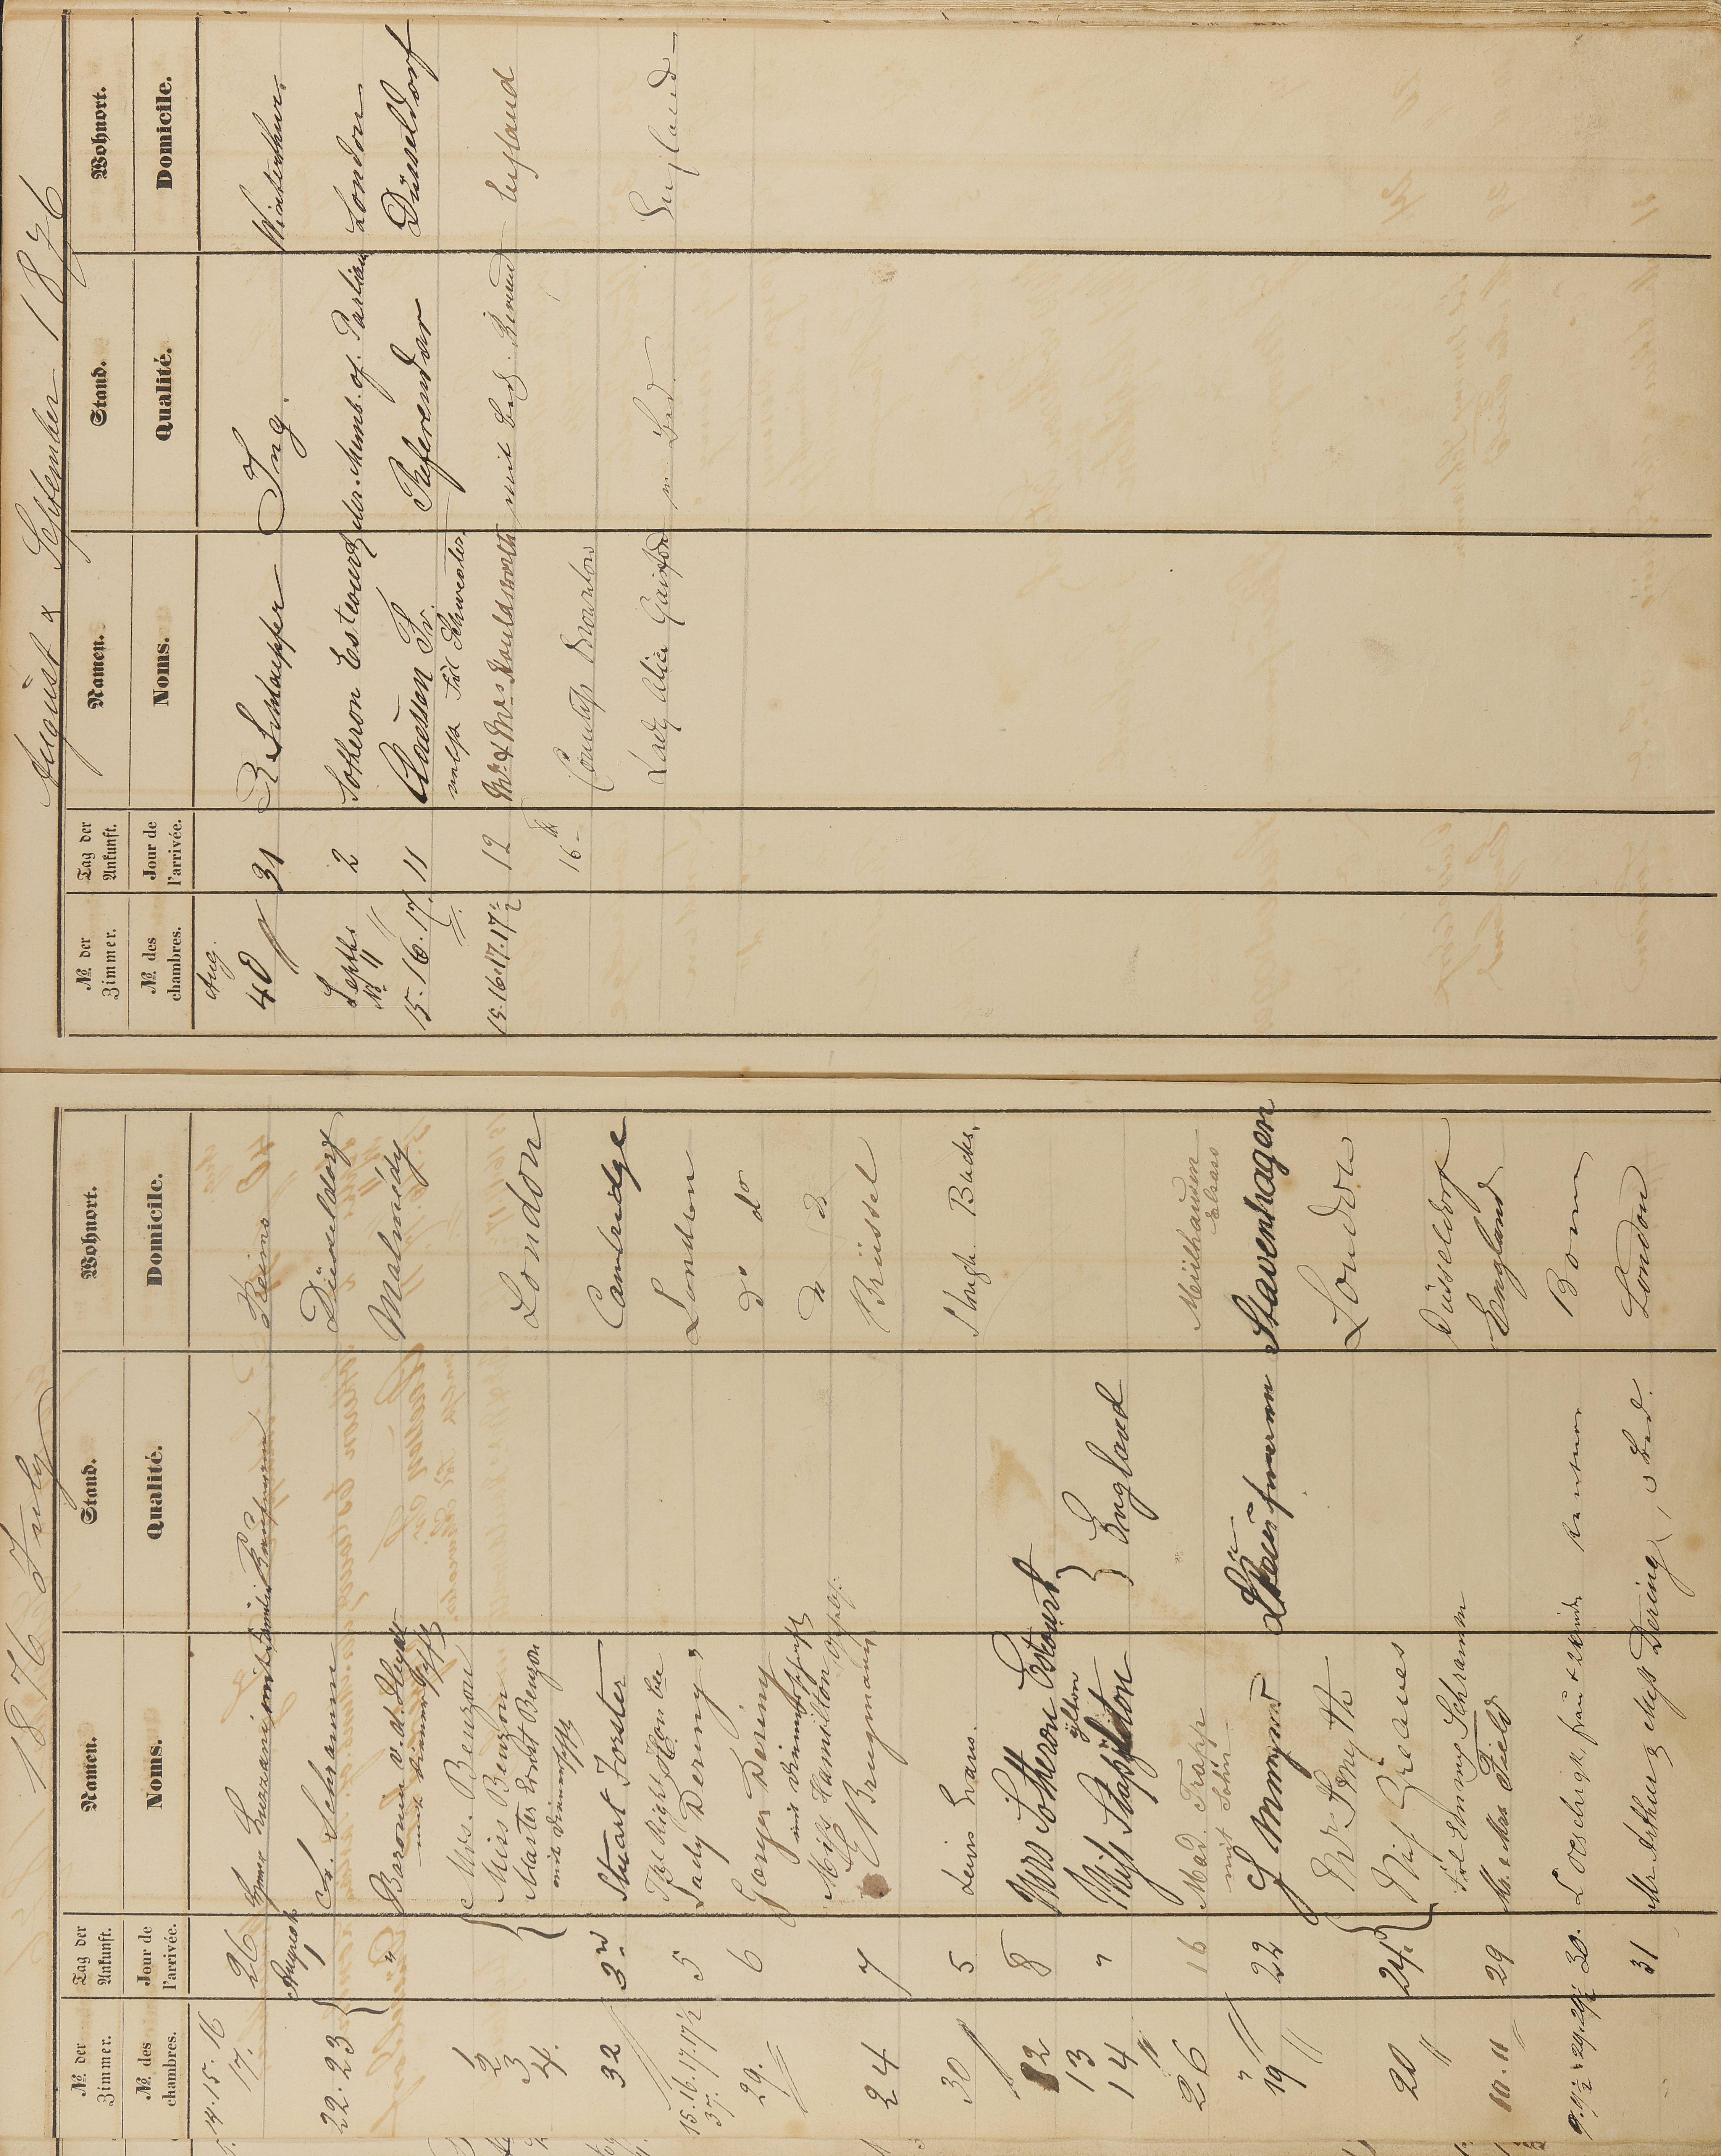 1876 July
№ der Zimmer. Tag der Ankunft. Namen. Stand. Wohnort.
№ des chambres. Jour de l'arrivée. Noms. Qualité. Domicile.
14. 15. 16
17. 26 mit Familie Reims
August
22. 23 1 Schramm Düsseldorf
" Baronin v. d. Heydt Malmédy
mit Dienersch
1 Mrs. Benzon
2 Miss Benzon London
3 Master Ernst Benzon
4. mit Dienerschft
32 3rd Stuart Forster Cambridge
15. 16. 17. 17½ 5 The Right Hon ble London
37. Lady Dering
29. 6 George Dering do do
mit Dienerschft
Miss Hamilton
24 7 E Brugmann Brüssel
30 5 Lewis Evans. Slough Bucks.
12 8 Mrs Sotheron Estcourt
13
14 " Miss Stapylton England
26 16 Mad. Trapp Mülhausen
mit Sohn Elsass
19 22 Kaufmann Stavenhagen
20 24. Mr Smyth London
Miss Greaves
Frl Emmy Schramm Düsseldorf
10. 11 29 Mr & Mrs Field England
30. Loeschigk, Frau & Kinder Rentner Bonn
31 Mr Arthur & Miss Dering, Bed. London
August & September 1876
№ der Zimmer. Tag der Ankunft. Namen. Stand. Wohnort.
№ des chambres. Jour de l'arrivée. Noms. Qualité. Domicile.
Aug.
40 31 R Ing. Winterthur.
Septbr
№ 11 2 Sotheron Estcourt Memb. of. Parliam London
15. 16. 17. 11 Fr. Referendar Düsseldorf
nebst Frl Schwester
15. 16. 17. 17½ 12 Mr & Mrs Houldsworth mit England
16th Countess Brownlow
Lady Alice Gaisford m Bed. England